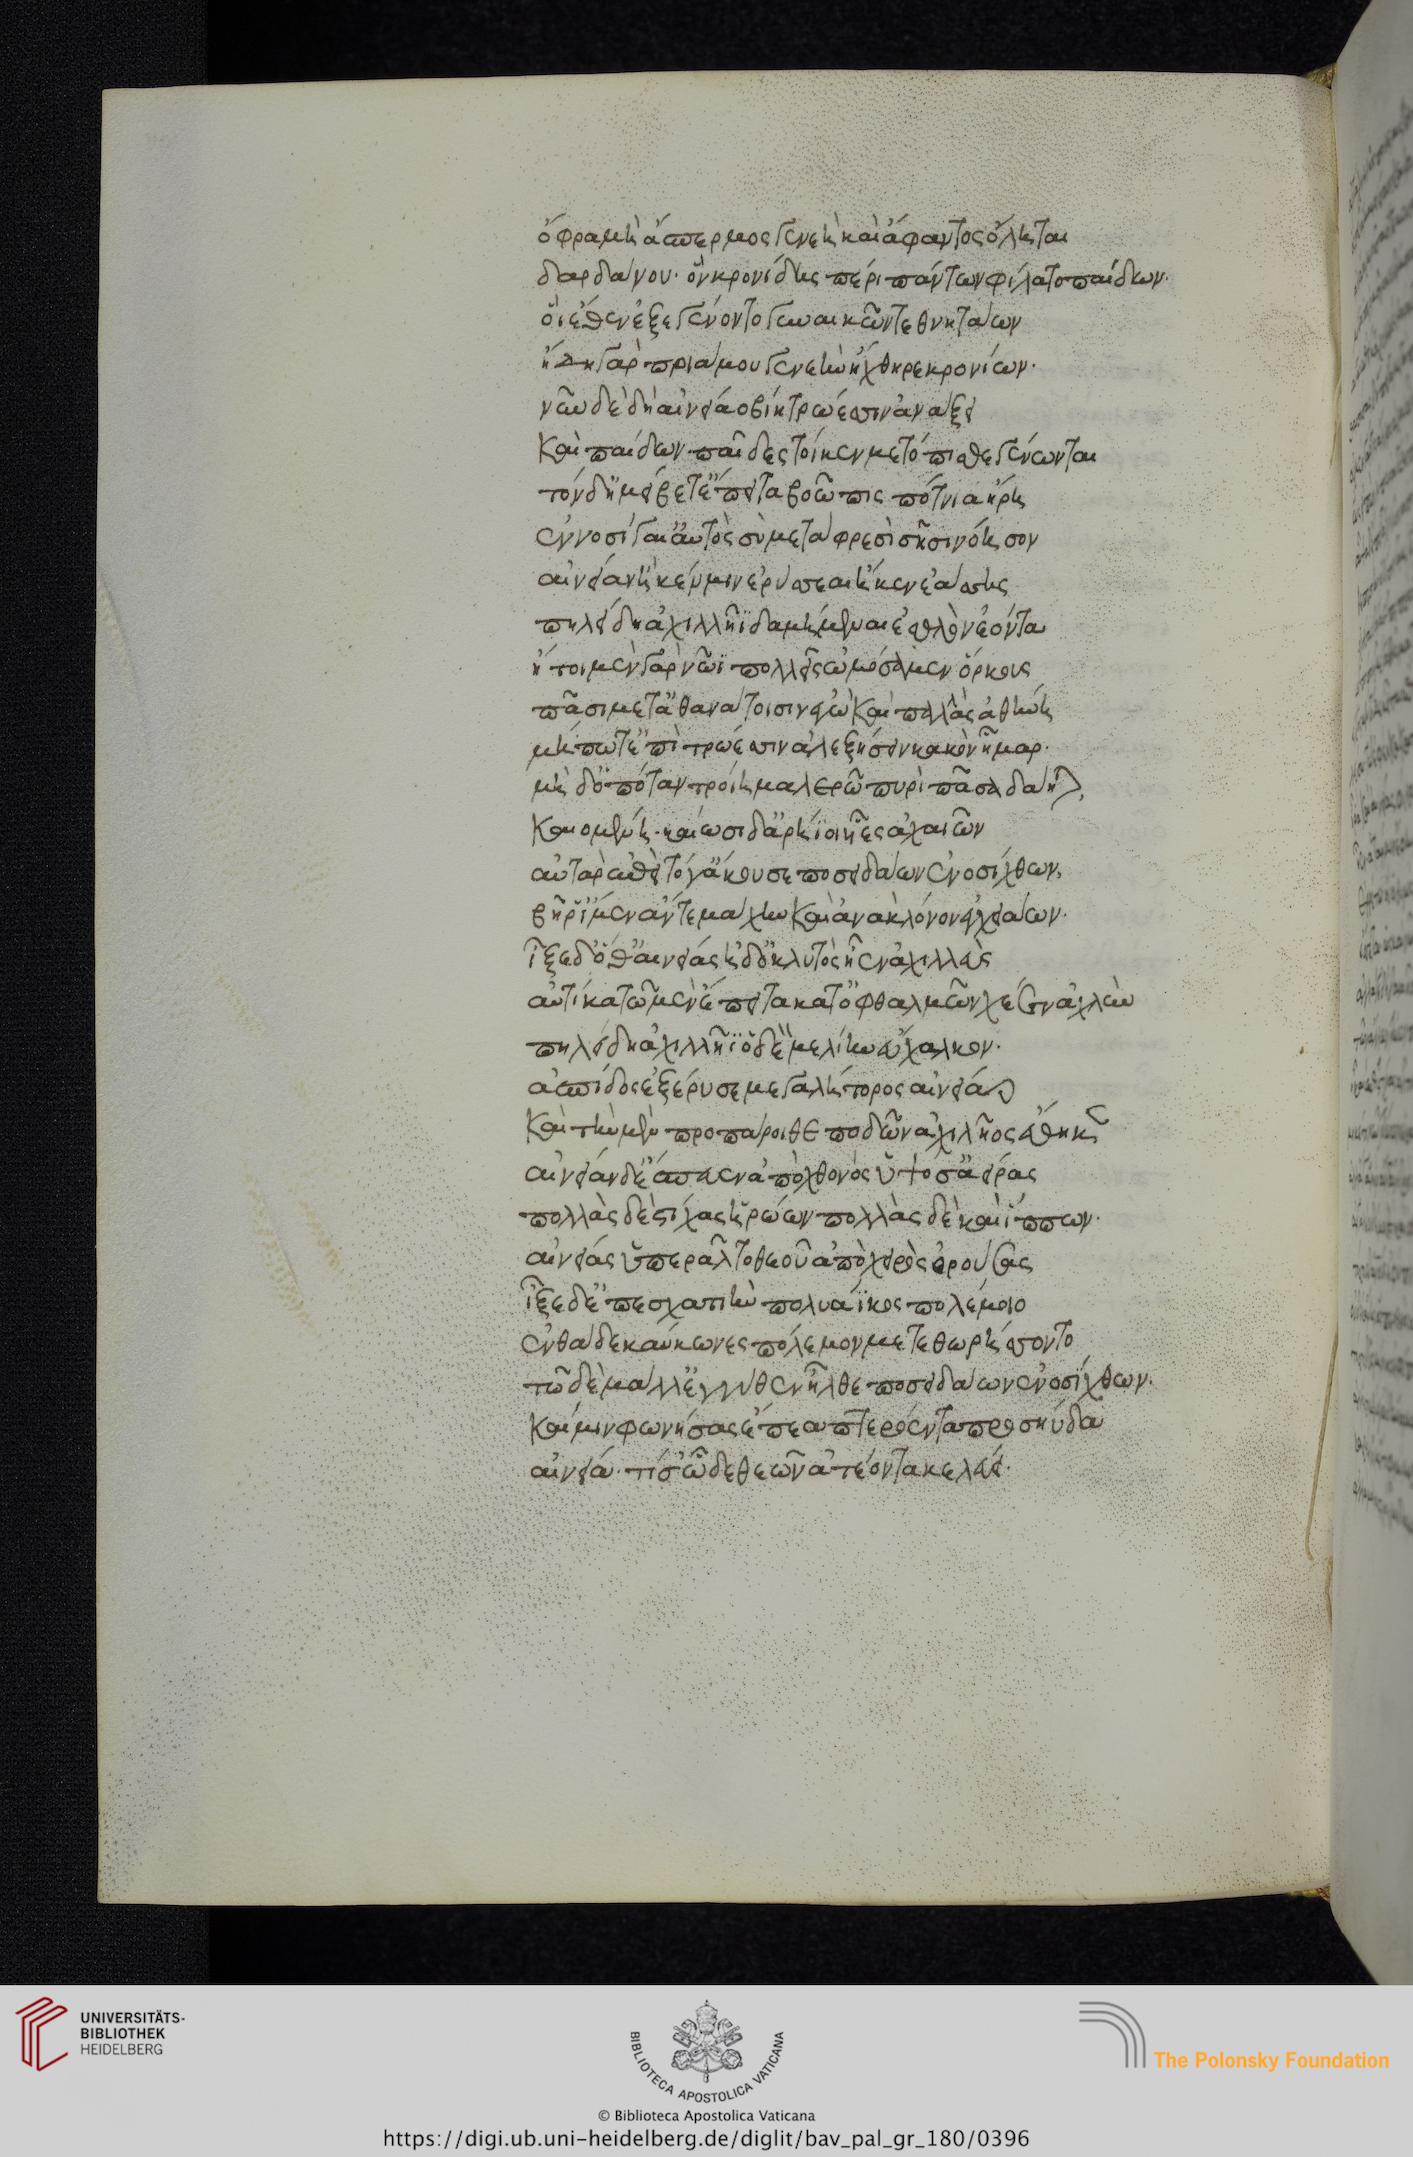 ὄφρα μὴ ἄσπερμος γενεὴ καὶ ἄφαντος ὄληται
δαρδάνου· ὃν κρονίδης περὶ πάντων φίλατο παίδων·
οἳ ἕθεν ἐξεγένοντο γυναικῶν τε θνητάων
ἤδη γὰρ πριάμου γενεὴν ἤχθηρε κρονίων·
νῦν δὲ δὴ αἰνείαο βίη τρώεσσιν ἀνάξει
καὶ παίδων παῖδες τοί κεν μετόπισθε γένωνται
τὸν δ' ἠμείβετ' ἔπειτα βοῶπις πότνια ἥρη
ἐννοσίγαι' αὐτὸς σὺ μετὰ φρεσὶ σῇσι νόησον
αἰνείαν ἤ κέν μιν ἐρύσσεαι ἤ κεν ἐάσῃς
πηλείδη ἀχιλλῆϊ δαμήμεναι ἐσθλὸν ἐόντα
ἤτοι μὲν γὰρ νῶϊ πολλεῖς ὠμόσαμεν ὅρκους
πᾶσι μετ' ἀθανάτοισιν ἐγὼ καὶ παλλὰς ἀθήνη
μή ποτ' ἐπὶ τρώεσσιν ἀλεξήσειν κακὸν ἦμαρ·
μὴ δ' ὁπότ' ἂν τροίη μαλερῶ πυρὶ πᾶσα δάηται
καιομένη· καίωσι δ' ἀρήϊοι υἷες ἀχαιῶν
αὐτὰρ ἐπεὶ τό γ' ἄκουσε ποσειδάων ἐνοσίχθων,
βῆ ῥ' ἴμεν ἄν τε μάχην καὶ ἀνὰ κλόνον ἐγχειάων·
ἷξε δ' ὅθ' αἰνείας ἠδ' ὁ κλυτὸς ἦεν ἀχιλλεὺς
αὐτίκα τῶ μὲν ἔπειτα κατ' ὀφθαλμῶν χέεν ἀχλὺν
πηλείδη ἀχιλλῆϊ ὁ δὲ μελίην εὔχαλκον·
ἀσπίδος ἐξέρυσε μεγαλήτορος αἰνείαο
καὶ τὴν μὲν προπάροιθε ποδῶν ἀχιλῆος ἔθηκεν
αἰνείαν δ' ἔσσευεν ἀπὸ χθονὸς ὑψόσ' ἀείρας
πολλὰς δὲ στίχας ἡρώων πολλὰς δὲ καὶ ἵππων·
αἰνείας ὑπερᾶλτο θεοῦ ἀπὸ χειρὸς ὀρούσας
ἷξε δ' ἐπ' ἐσχατιὴν πολυάϊκος πολέμοιο
ἔνθα δὲ καύκωνες πόλεμον μέτα θωρήσσοντο
τῶ δὲ μάλ' ἐγγύθεν ἦλθε ποσειδάων ἐνοσίχθων·
καί μιν φωνήσας ἔπεα πτερόεντα προσηύδα
αἰνεία· τίς σ' ὧδε θεῶν ἀτέοντα κελεύει·
UNIVERSITÄTS-
BIBLIOTHEK
HEIDELBERG
BIBLIOTECA APOSTOLICA VATICANA
The Polonsky Foundation
© Biblioteca Apostolica Vaticana
https://digi.ub.uni-heidelberg.de/diglit/bav_pal_gr_180/0396